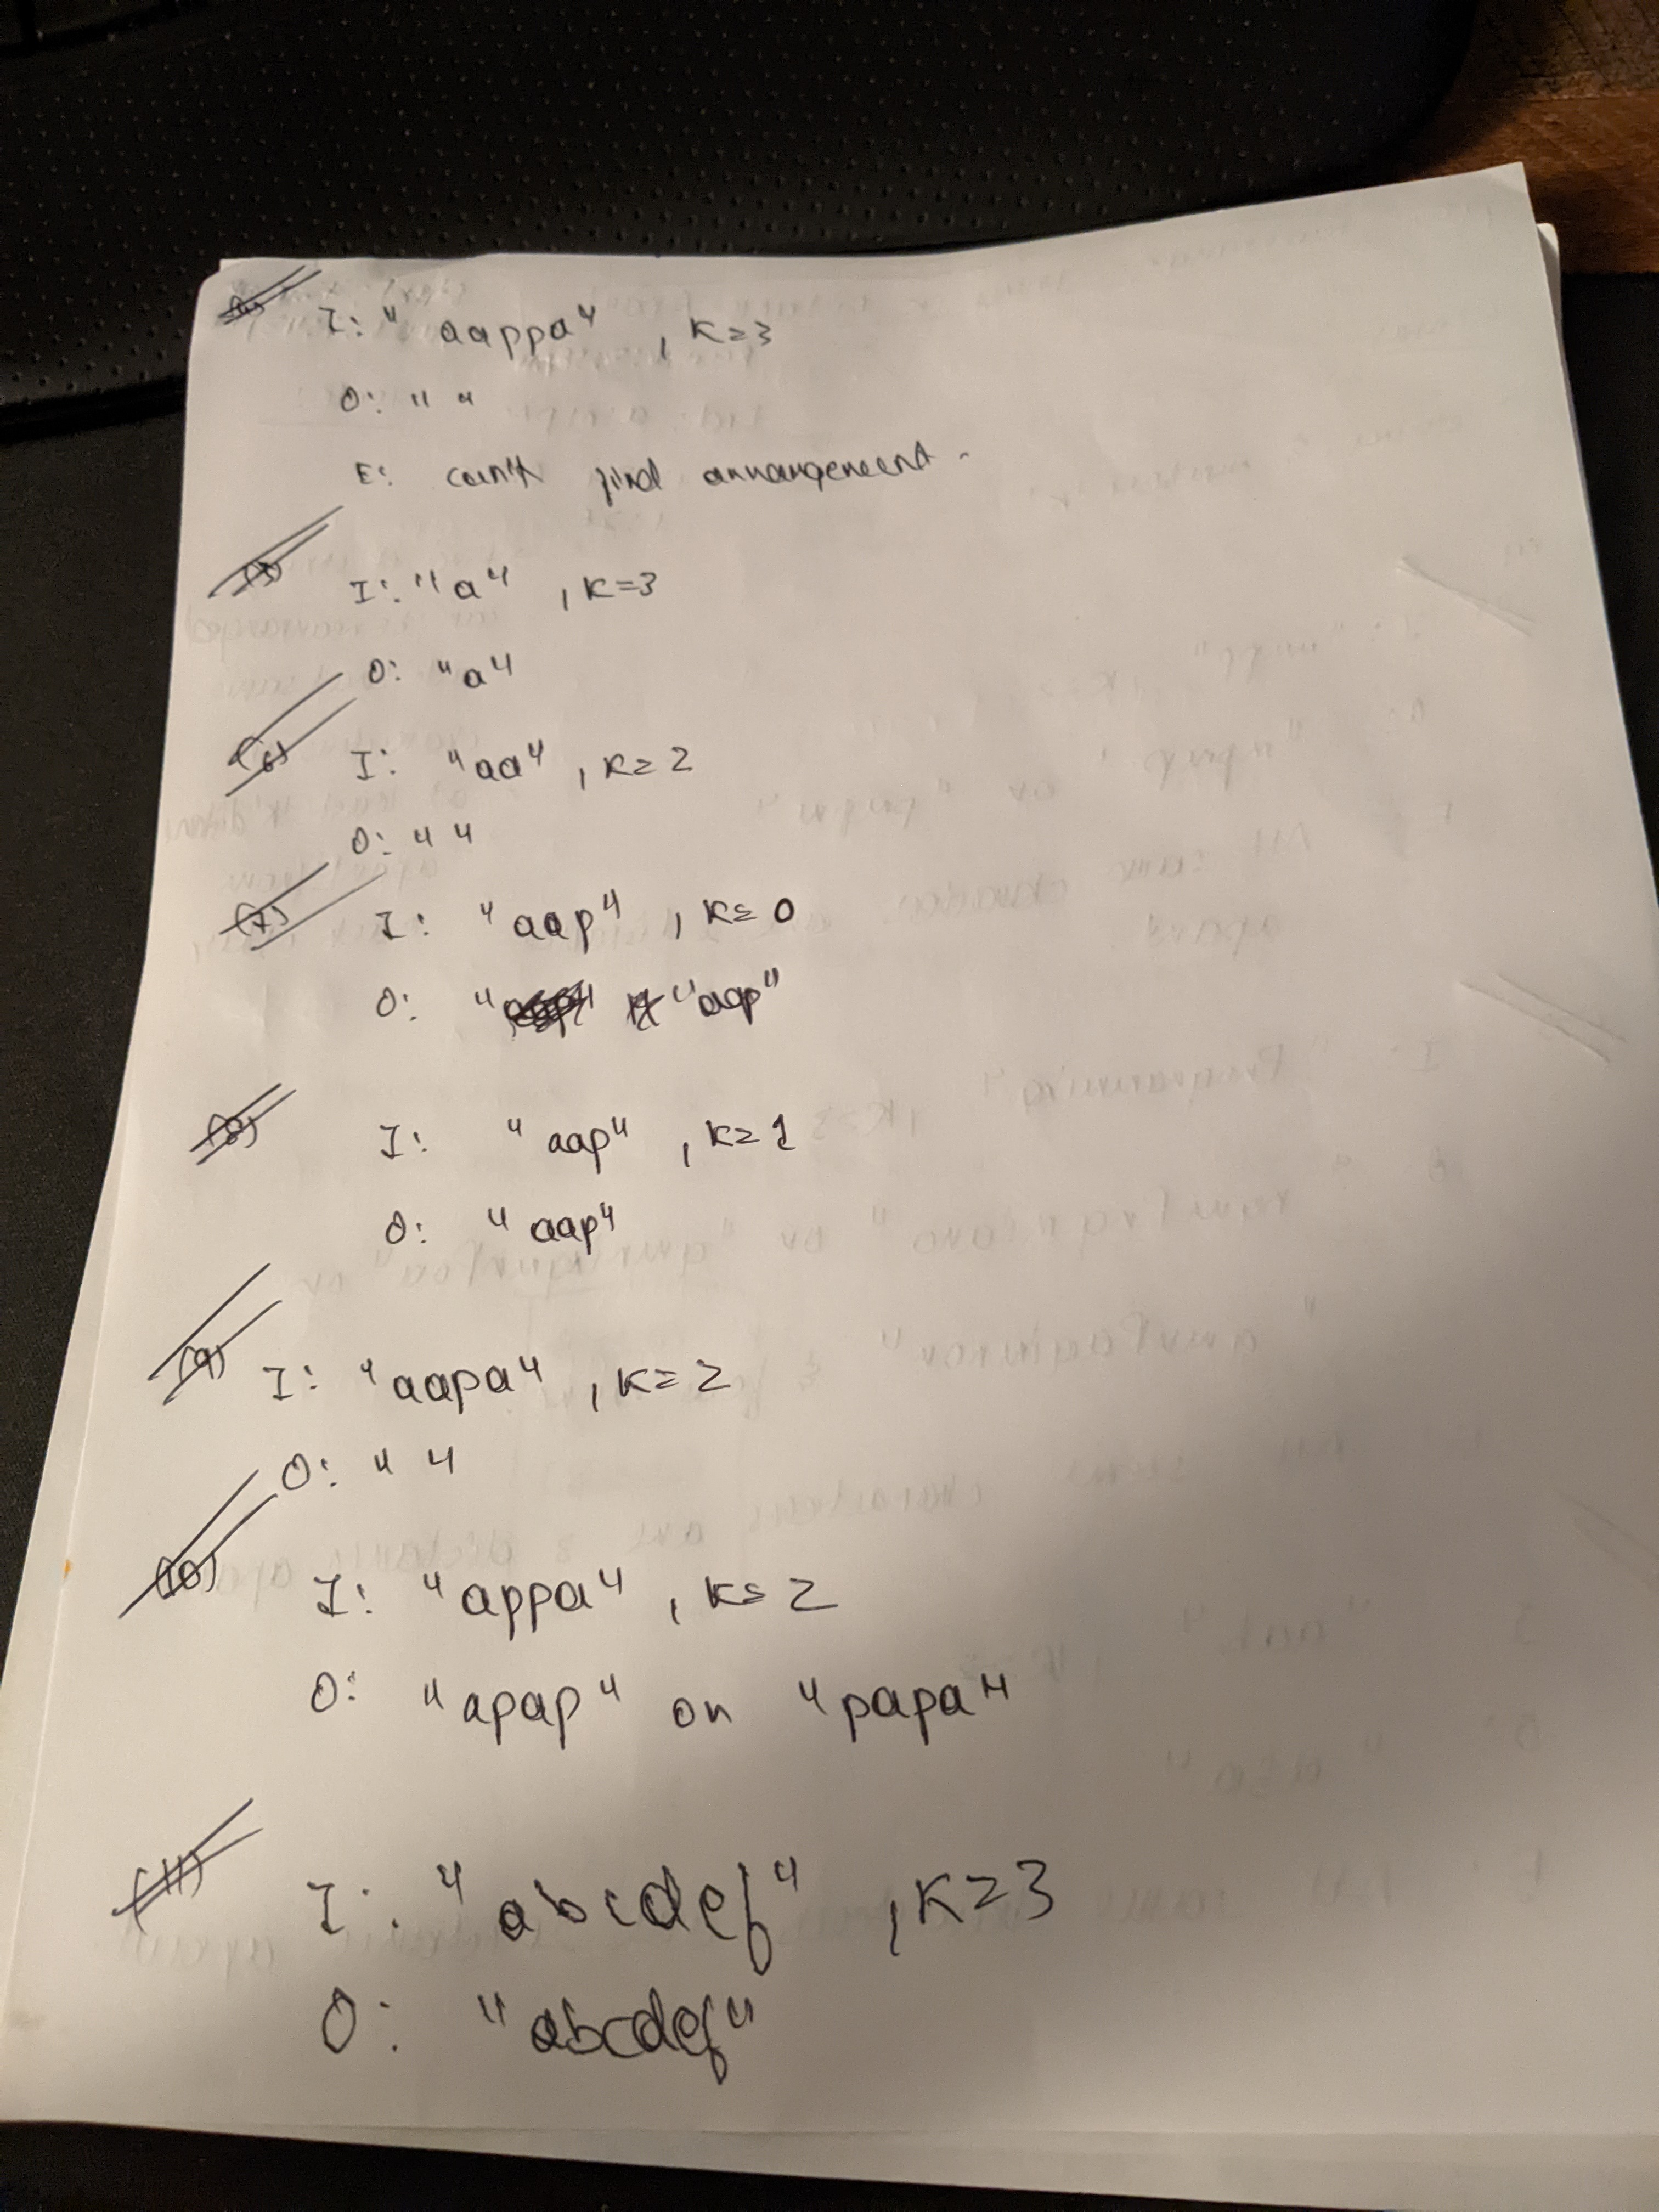 (4) I: "aappa" , K=3
O: " "
E: can't find arrangement.
(5) I: "a" , K=3
O: "a"
(6) I: "aa" , K=2
O: " "
(7) I: "aap" , K=0
O: "aap"
(8) I: "aap" , K=1
O: "aap"
(9) I: "aapa" , K=2
O: " "
(10) I: "appa" , K=2
O: "apap" or "papa"
(11) I: "abcdef" , K=3
O: "abcdef"